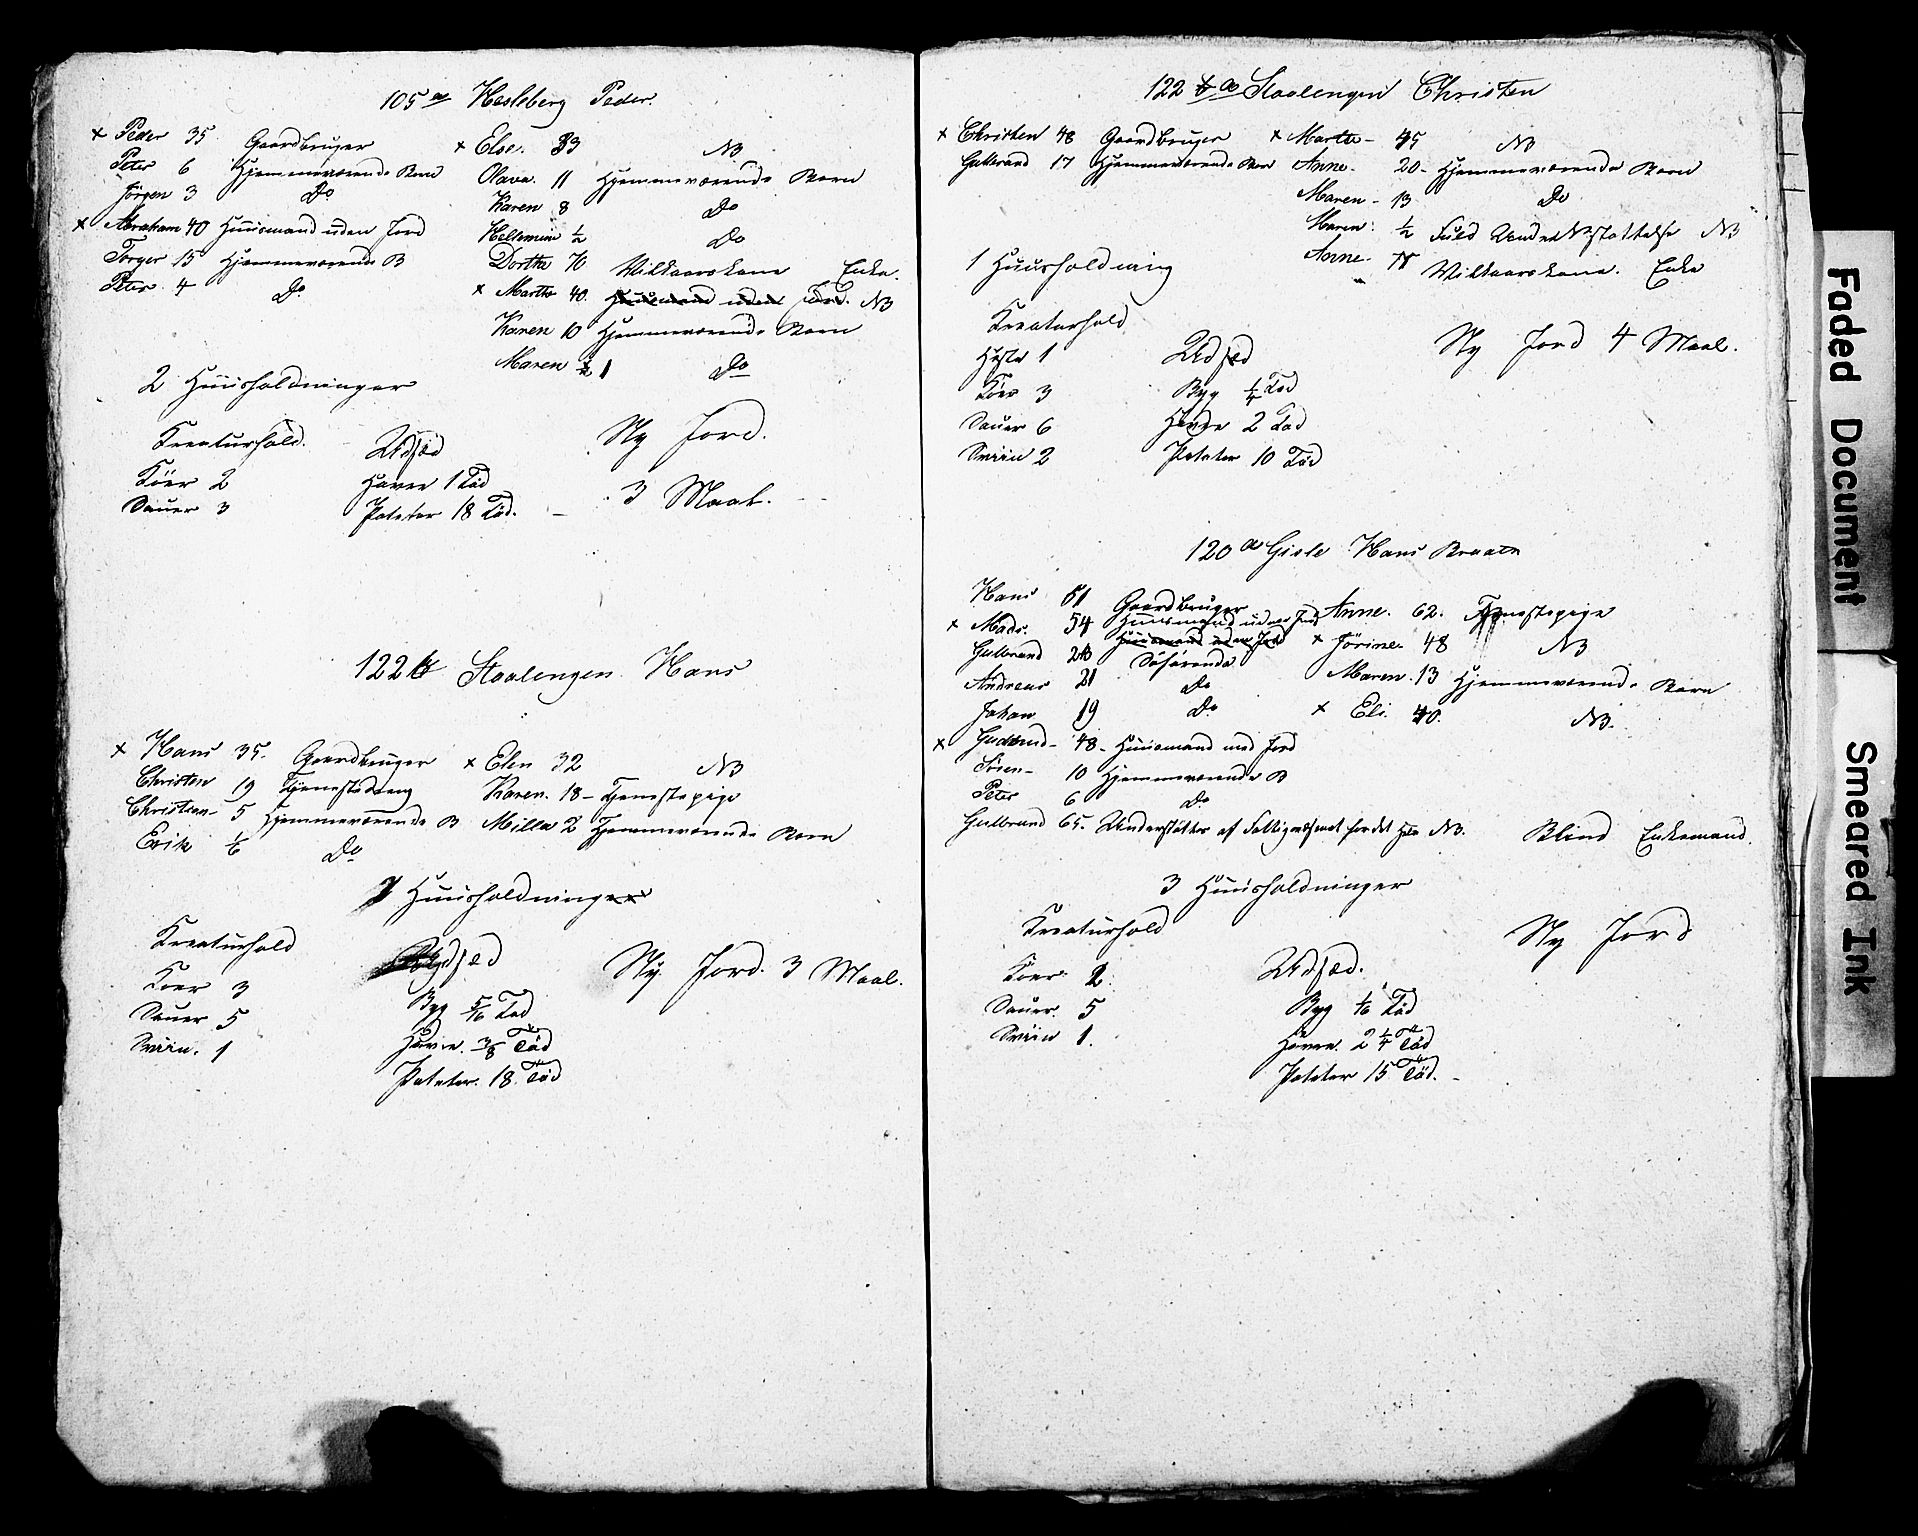 105 a Hesleberg Peder.
× Peder 35 Gaardbruger
Peter 6 Hjemmeværende Børn
Jörgen 3 Do
× Abraham 40 Huusmand uden Jord
Torger 15 Hjemmeværende B
Peter 4 Do
× Else. 33 NB
Olava. 11 Hjemmeværende Børn
Karen 8 Do
½ Do
Dorthe 70 Wilkaarskone Enke.
× Marthe 40. Huusmand uden Jord. NB
Karen 10 Hjemmeværende Børn
Maren 1 Do
2 Huusholdninger
Kreaturhold.
Köer 2
Sauer 3
Udsæd
Havre 1 Töd
Poteter 18 Töd.
Ny Jord.
3 Maal.
122 b Staalengen Hans
× Hans 35. Gaardbruger
Christen 19 Tjenestedreng
Christian 5 Hjemmeværende B
Erik Do
× Elen 32 NB
Karen. 18 - Tjenestepige
Milla 2 Hjemmeværende Børn
1 Huusholdninger
Kreaturhold
Koer 3
Sauer 5
Sviin. 1
Udsæd
Byg 5/16 Töd
Havre. 3/8 Töd
Poteter. 18. Töd
Ny Jord. 3 Maal.
122 a Staalengen Christen
× Christen 48 Gaardbruger
Gulbrand 17 Hjemmeværende Børn
× Marthe - 45 NB
Anne - 20 - Hjemmeværende Børn
Maren - 13 Do
Maren ½ Fuld Understöttelse NB
Anne - Wilkaarskone. Enke
1 Huusholdning
Kreaturhold
Heste 1
Köer 3
Sauer 6
Sviin 2
Udsæd
Byg ¼ Töd
Havre 2 Töd
Poteter 10 Töd
Ny Jord 4 Maal.
120 a Gisle Hans Braaten
Hans 61 Gaardbruger
× Mads. 54 Huusmand uden Jord
Huusmand uden Jord
Gulbrand Söfarende
Andreas 21 Do
Johan 19 Do
× Gudbrand - 48 - Huusmand med Jord
Sören - 10 Hjemmeværende B
Peter 6 Do
Gulbrand 65. Understöttes af Fattigvæsenet for det Hele NB. Blind Enkemand.
Anne. 62. Tjenestepige
× Jörine 48 NB
Maren. 13 Hjemmeværende Børn
× Eli. 40. NB.
3 Huusholdninger
Kreaturhold
Koer 2
Sauer 5
Sviin 1.
Udsæd.
Byg 1/16 Töd
Havre. 2 ¼ Töd
Poteter 15 Töd.
Ny Jord
Faded Document
Smeared Ink